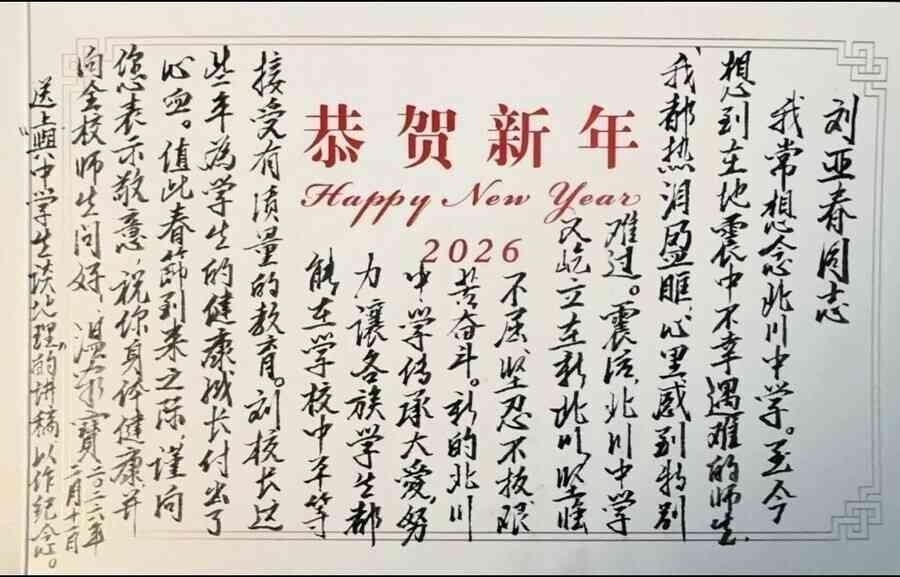 刘亚春同志
我常想念北川中学。至今
想到在地震中不幸遇难的师生,
我都热泪盈眶,心里感到特别
恭贺新年
Happy New Year
2026
难过。震后,北川中学
又屹立在新北川,坚强
不屈,坚忍不拔,艰
苦奋斗。新的北川
中学传承大爱,努
力让各族学生都
能在学校中平等
接受有质量的教育。刘校长这
些年为学生的健康成长付出了
心血。值此春节到来之际,谨向
您表示敬意,祝你身体健康,并
向全校师生问好。温家寶
二〇二六年
二月十日
送上“與中学生谈地理”的讲稿,以作纪念。